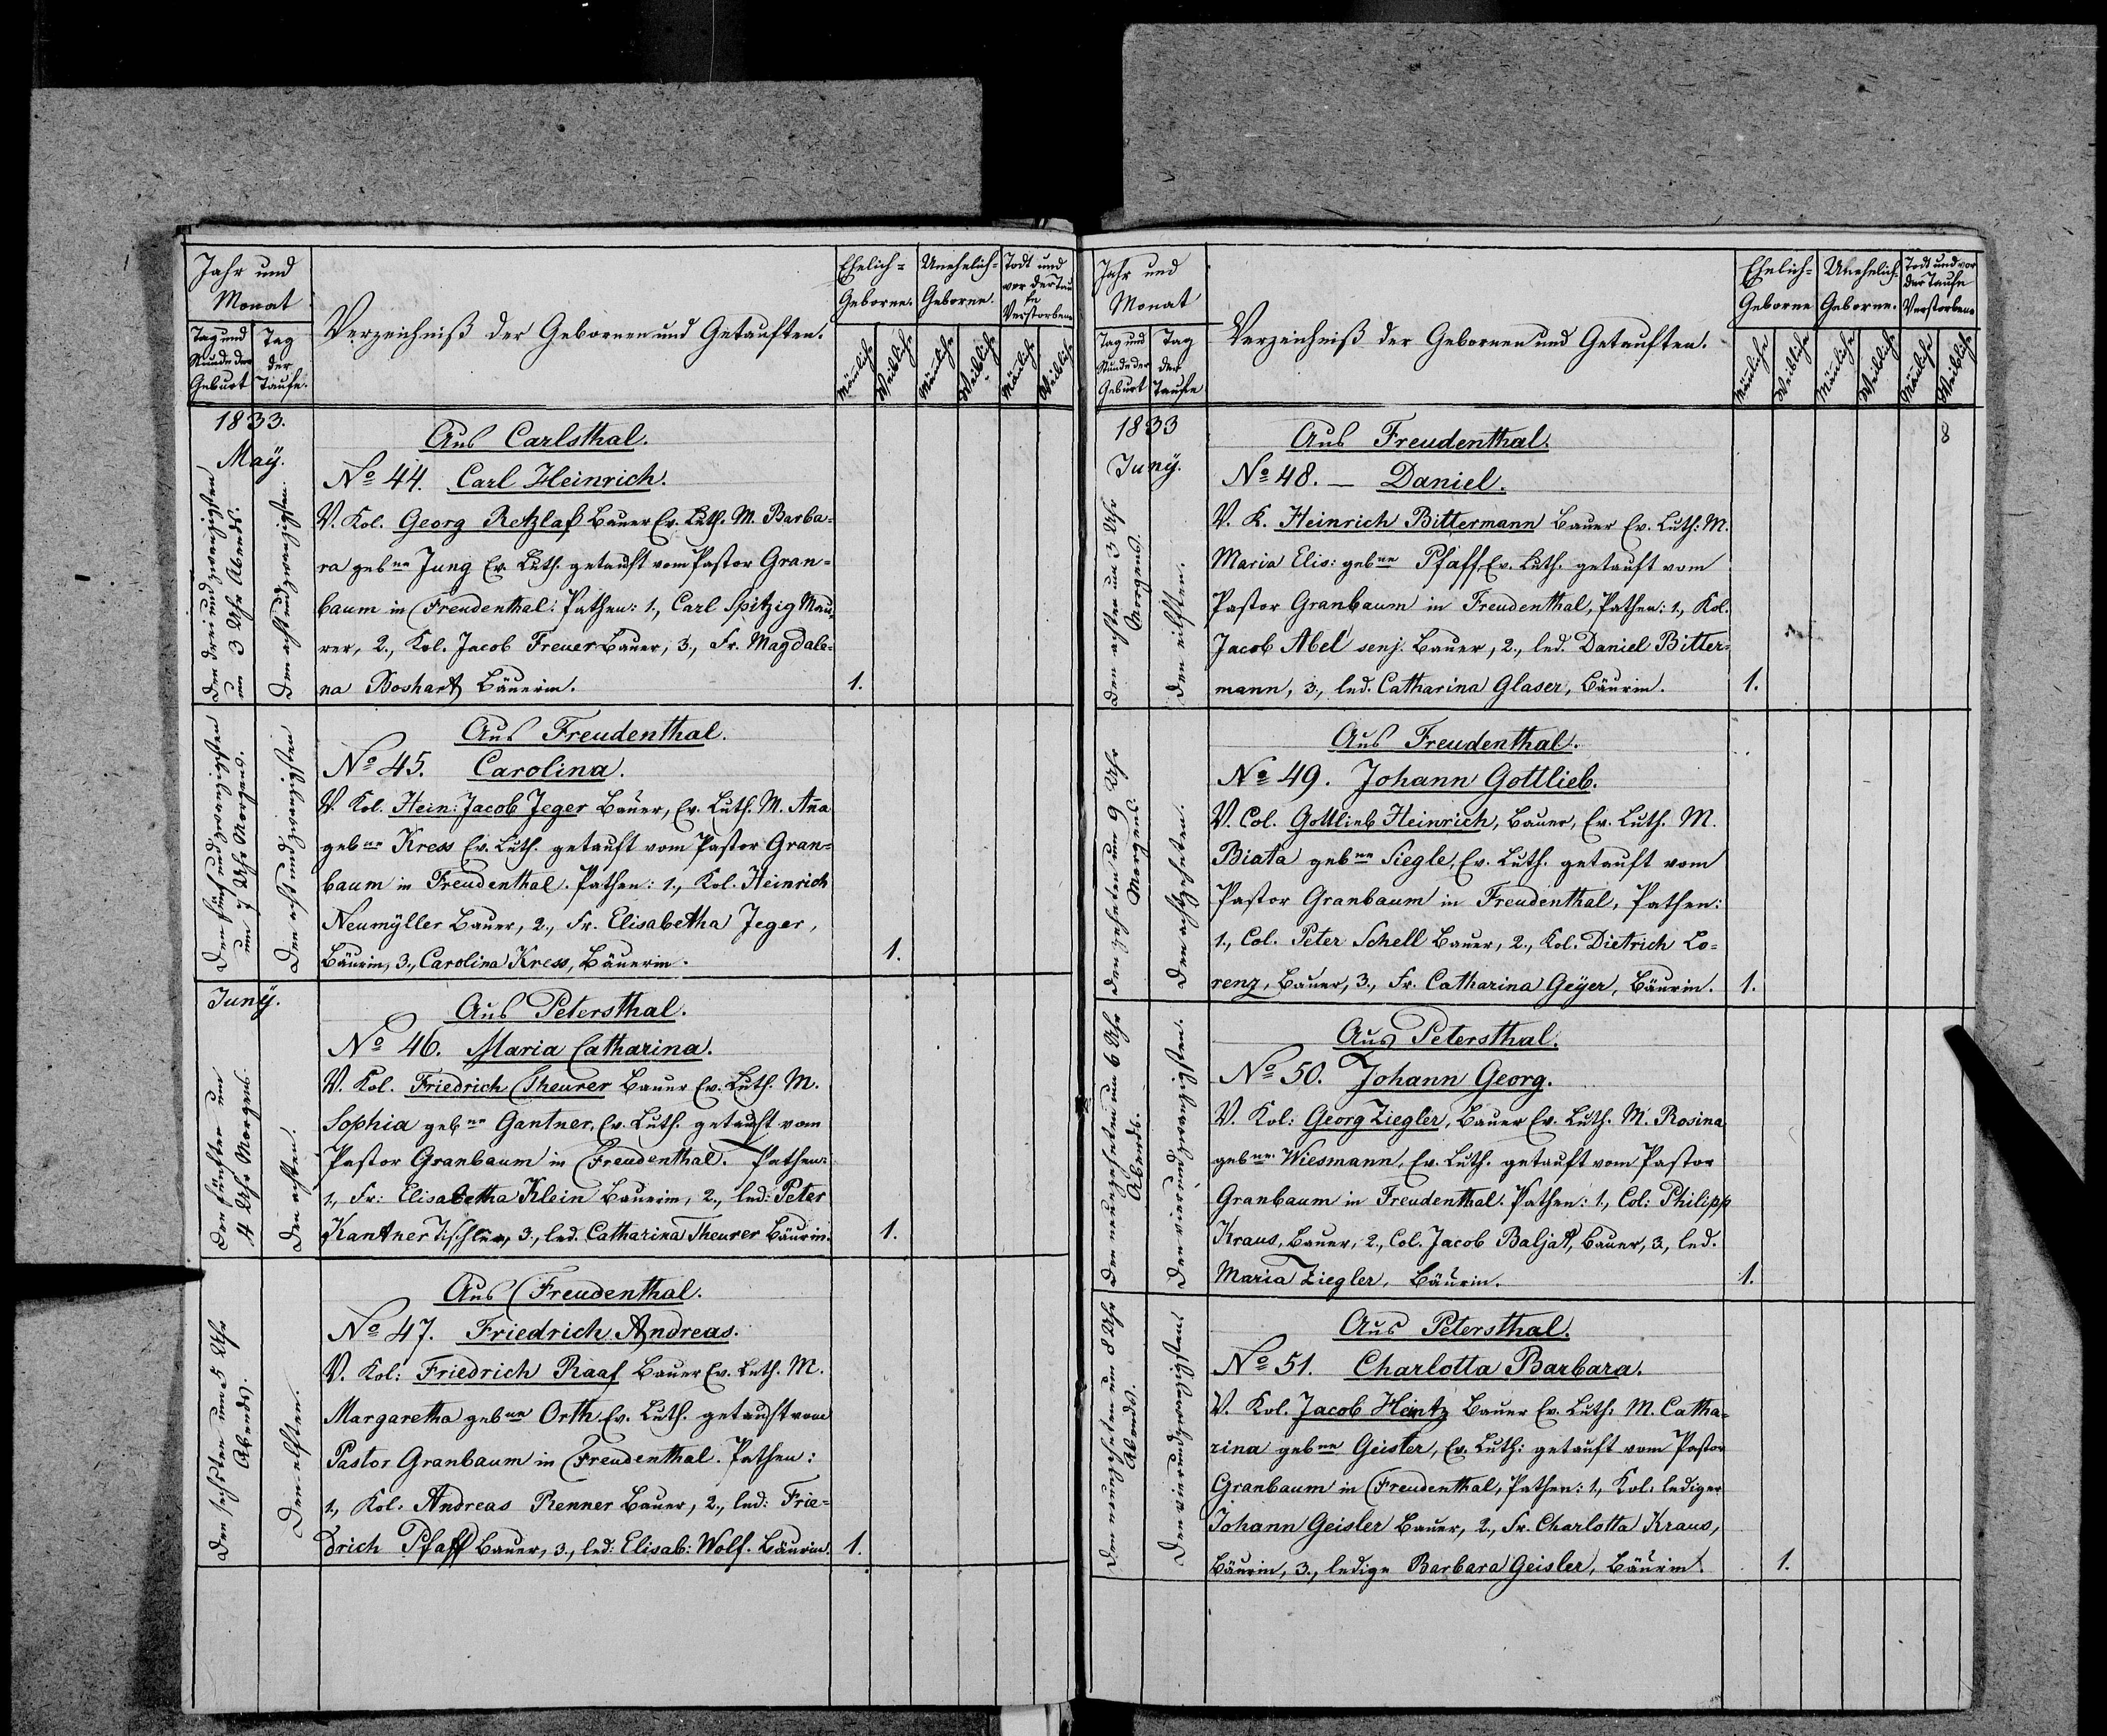 Jahr und
Monat
Tag und
Stunde der
Geburt
Tag
der
Taufe.
Verzeichniß der Gebornen und Getauften.
Ehelich=
Geborne.
Unehelich=
Geborne.
Todt und
vor der Tau
fe
Verstorbene
Mänliche
Weibliche
Mänliche
Weibliche
Mänliche
Weibliche
1833.
May.
Den drei und zwanzigsten
um 3 Uhr Abends.
Den acht und zwanzigsten.
Aus Carlsthal.
No 44. Carl Heinrich.
V. Kol. Georg Retzlaf Bauer Ev. Luth. M. Barba=
ra gebne Jung Ev. Luth. getauft vom Pastor Gran=
baum in Freudenthal. Pathen: 1., Carl Spitzig Mau=
rer, 2., Kol. Jacob Freuer Bauer, 3., Fr. Magdale=
na Boshart Bäuerin.
1.
Den fünf und zwanzigsten
um 7 Uhr Morgens.
Den acht und zwanzigsten
Aus Freudenthal.
No 45. Carolina.
V. Kol. Hein: Jacob Jeger Bauer, Ev. Luth. M. Ana
gebne Kress Ev. Luth. getauft vom Pastor Gran=
baum in Freudenthal. Pathen: 1., Kol. Heinrich
Neumyller Bauer, 2., Fr. Elisabetha Jeger,
Bäurin, 3., Carolina Kress, Bäuerin.
1.
Juny.
Den fünften um
4 Uhr Morgens.
Den achten.
Aus Petersthal.
No 46. Maria Catharina.
V. Kol. Friedrich Theurer Bauer Ev. Luth. M.
Sophia gebne Gantner, Ev. Luth. getauft vom
Pastor Granbaum in Freudenthal. Pathen:
1., Fr: Elisabetha Klein Bäuerin, 2., led: Peter
Kantner Tischler, 3., led. Catharina Theurer Bäurin.
1.
Den sechsten um 5 Uhr
Abends.
Den elften.
Aus Freudenthal.
No 47. Friedrich Andreas.
V. Kol: Friedrich Raaf Bauer Ev. Luth. M.
Margaretha gebne Orth Ev. Luth. getauft vom
Pastor Granbaum in Freudenthal. Pathen:
1., Kol. Andreas Renner Bauer, 2., led: Frie=
drich Pfaff Bauer, 3., led: Elisab: Wolf. Bäurin.
1.
Jahr und
Monat
Tag und
Stunde der
Geburt
Tag
der
Taufe
Verzeichniß der Gebornen und Getauften.
Ehelich=
Geborne
Unehelich=
Geborne.
Todt und vor
der Taufe
Verstorbene
Mänliche
Weibliche
Mänliche
Weibliche
Mänliche
Weibliche
8
1833
Juny.
Den achten um 3 Uhr
Morgens.
Den eilften.
Aus Freudenthal.
No 48. – Daniel.
V. K. Heinrich Bittermann Bauer Ev. Luth: M.
Maria Elis: gebne Pfaff, Ev. Luth. getauft vom
Pastor Granbaum in Freudenthal, Pathen: 1., Kol.
Jacob Abel senj. Bauer, 2., led. Daniel Bitter=
mann, 3., led. Catharina Glaser, Bäurin.
1.
Den zehnten um 9 Uhr
Morgens.
Den achtzehnten.
Aus Freudenthal.
No 49. Johann Gottlieb.
V. Col. Gottlieb Heinrich, Bauer, Ev. Luth. M.
Biata gebne Siegle, Ev. Luth. getauft vom
Pastor Granbaum in Freudenthal, Pathen:
1., Col. Peter Schell Bauer, 2., Kol. Dietrich Lo=
renz, Bauer, 3., Fr. Catharina Geyer, Bäurin.
1.
Den neunzehnten um 6 Uhr
Abends.
Den vierundzwanzigsten.
Aus Petersthal.
No 50. Johann Georg.
V. Kol: Georg Ziegler, Bauer Ev. Luth. M. Rosina
gebne Wiesmann, Ev. Luth. getauft vom Pastor
Granbaum in Freudenthal. Pathen: 1., Col: Philipp
Kraus, Bauer, 2., Col. Jacob Baljat, Bauer, 3., led.
Maria Ziegler, Bäurin.
1.
Den neunzehnten um 8 Uhr
Abends.
Den vierundzwanzigsten.
Aus Petersthal.
No 51. Charlotta Barbara.
V. Kol. Jacob Hentz Bauer Ev. Luth: M. Catha=
rina gebne Geisler, Ev. Luth: getauft vom Pastor
Granbaum in Freudenthal, Pathen: 1., Kol. lediger
Johann Geisler Bauer, 2., Fr. Charlotta Kraus,
Bäurin, 3., ledige Barbara Geisler, Bäurin.
1.